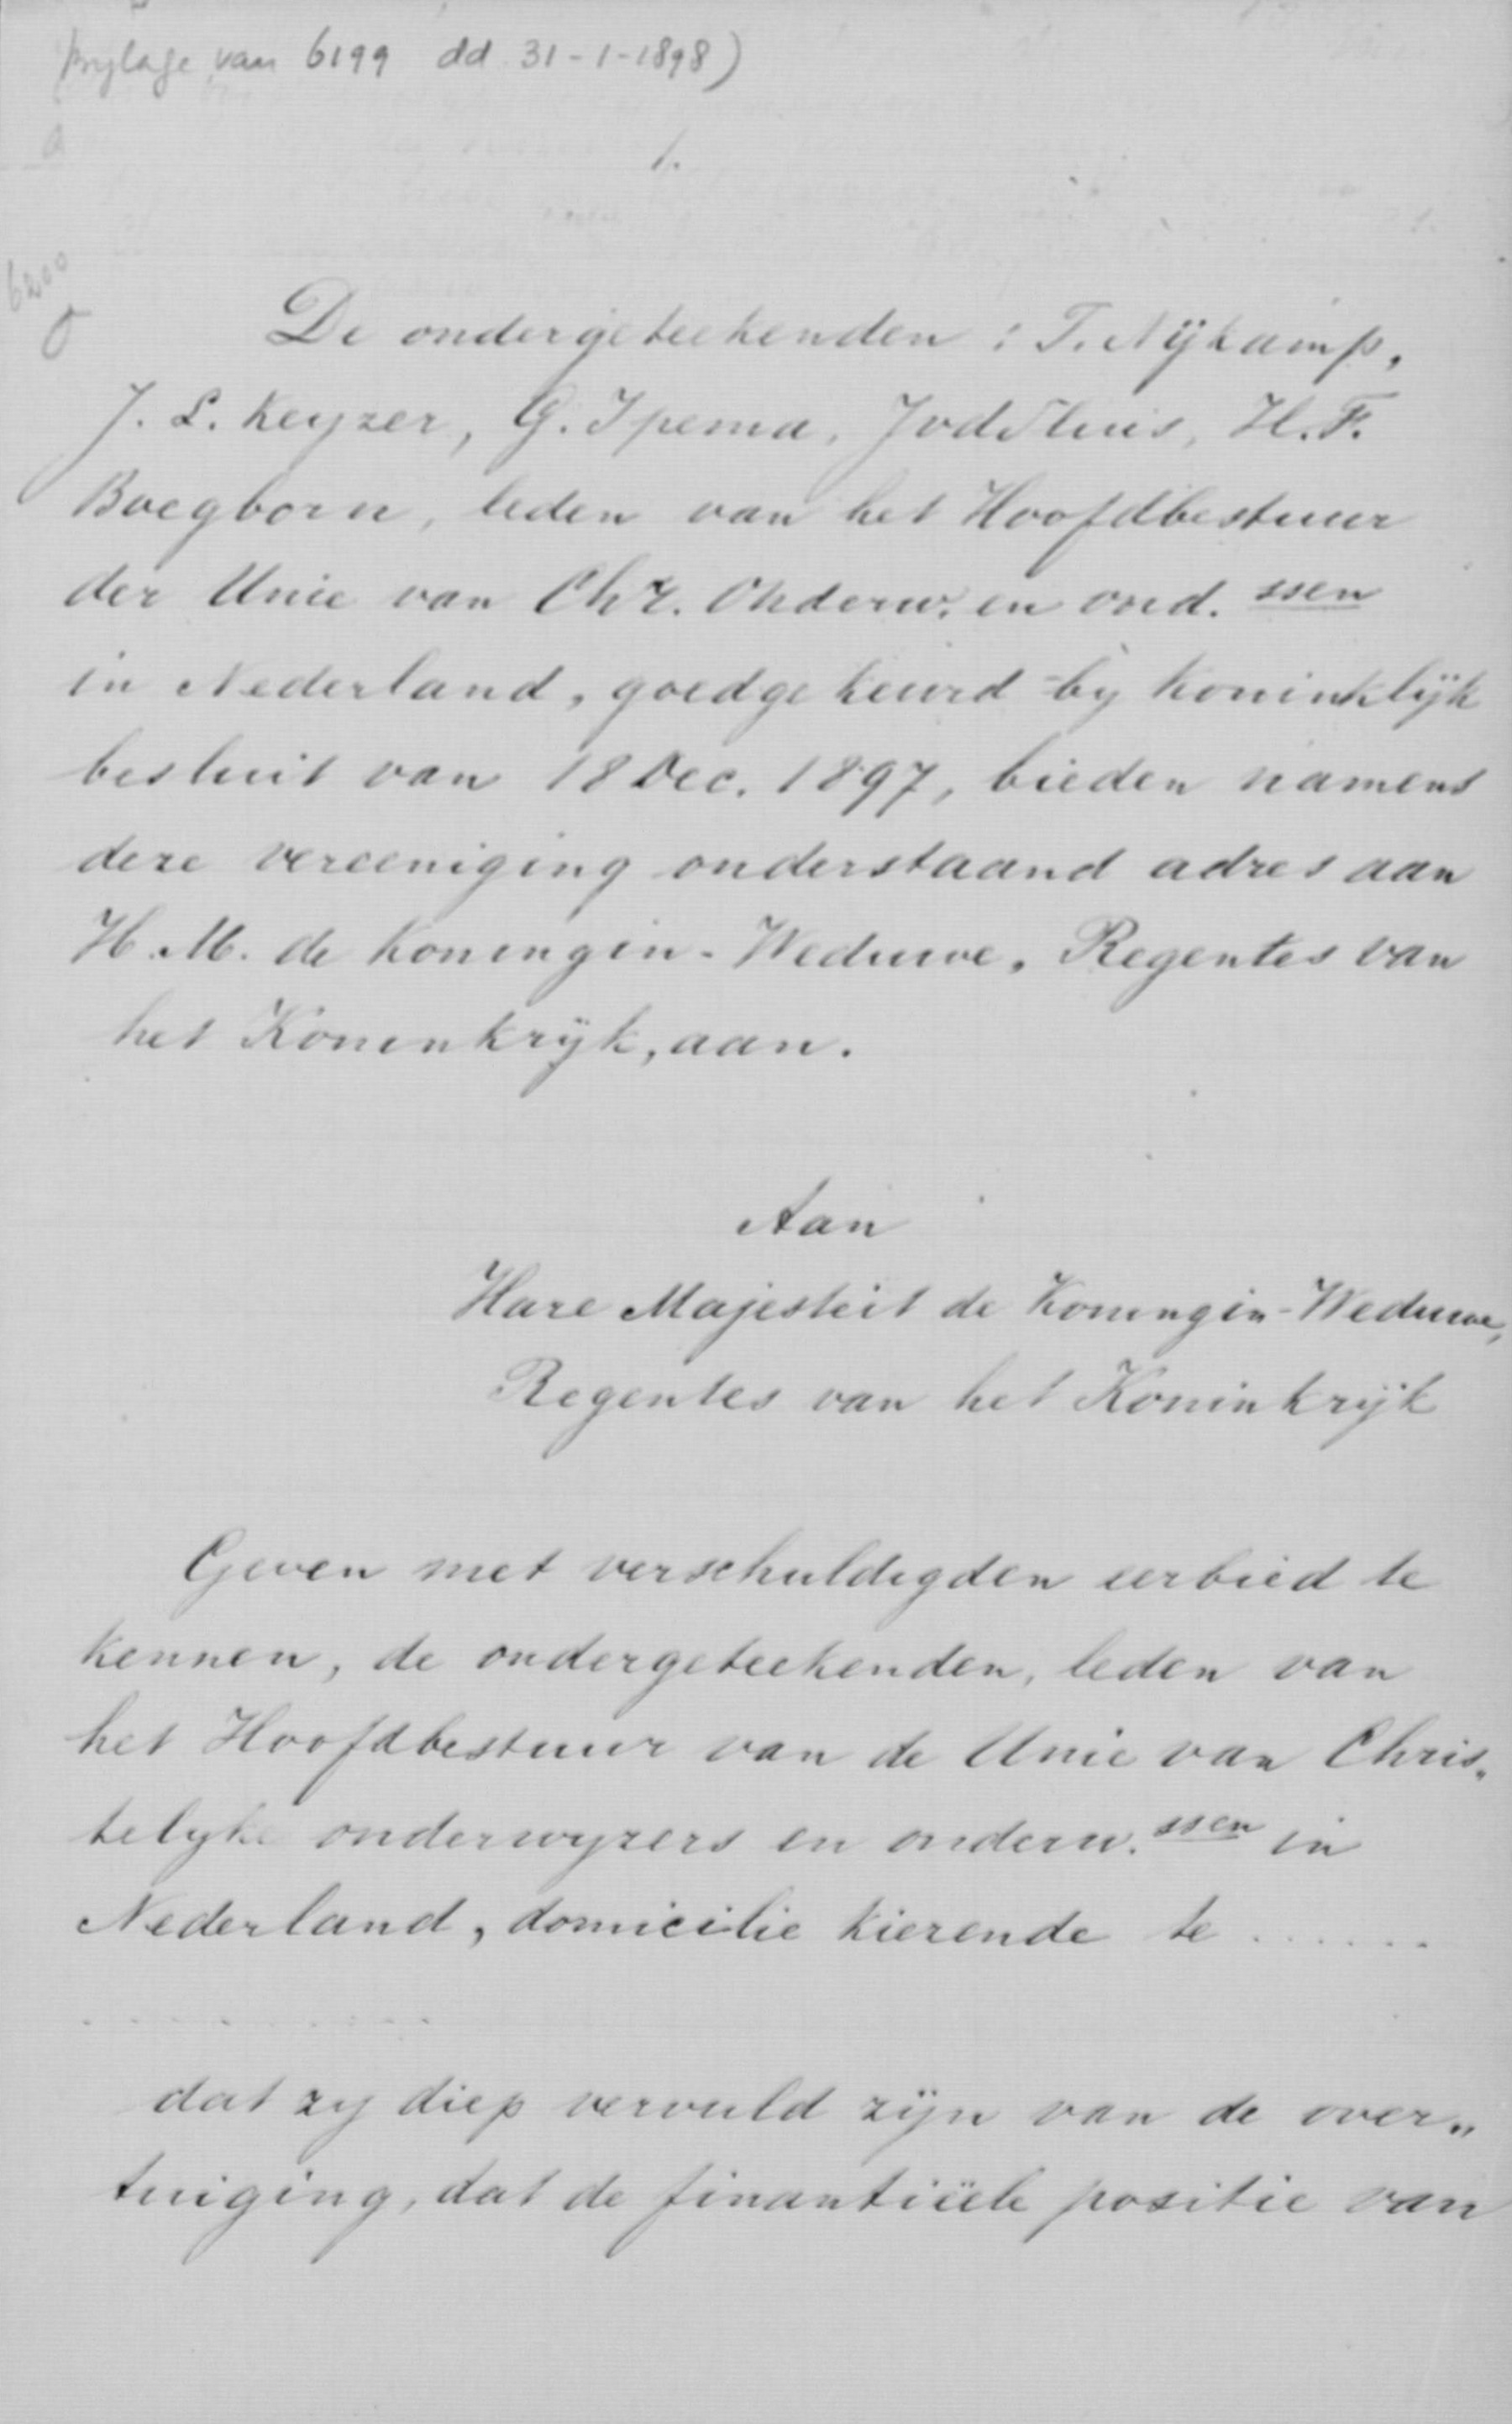 bijlage van 6199 dd. 31-1-1898)
1.
6200
De ondergeteekenden: T. Nijkamp,
J. L. Keyzer, G. Ipema, JvdSluis, H. F.
Boegborn, leden van het Hoofdbestuur
der Unie van Chr. Onderw. en ond. ssen
in Nederland, goedgekeurd by koninklijk
besluit van 18 Dec. 1897, bieden namens
deze vereeniging onderstaand adres aan
H. M. de Koningin-Weduwe, Regentes van
het Koninkrijk, aan.
Aan
Hare Majesteit de Koningin-Weduwe,
Regentes van het Koninkrijk
Geven met verschuldigden eerbied te
kennen, de ondergeteekenden, leden van
het Hoofdbestuur van de Unie van Chris„
telyke onderwyzers en onderw. ssen in
Nederland, domicilie kierende te ......
..........
dat zy diep vervuld zijn van de over„
tuiging, dat de finantiëele positie van